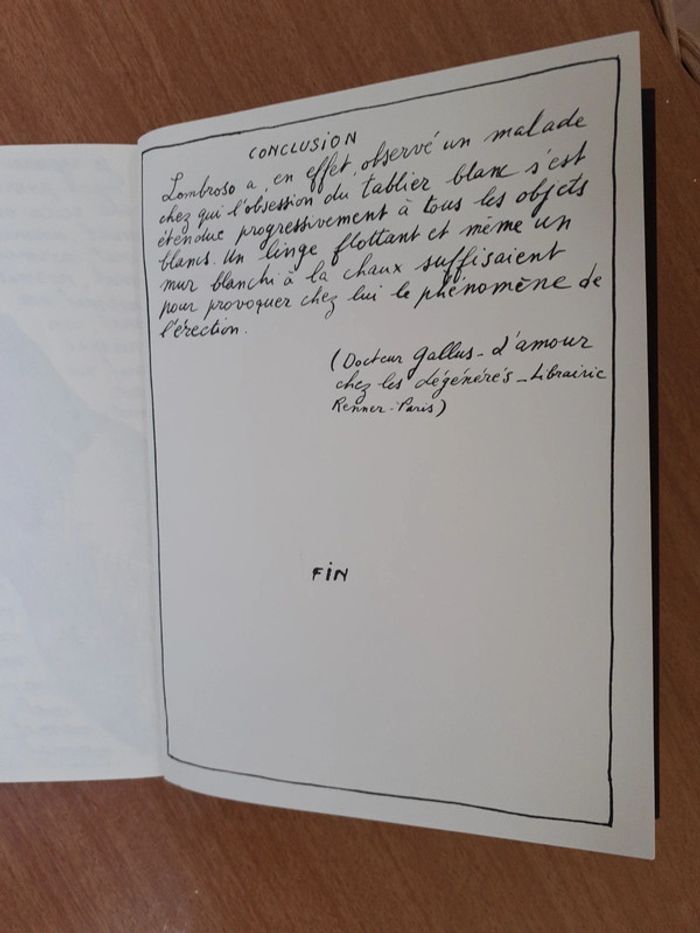 CONCLUSION
Lombroso a, en effet, observé un malade
chez qui l'obsession du tablier blanc s'est
étendue progressivement à tous les objets
blancs. Un linge flottant et même un
mur blanchi à la chaux suffisaient
pour provoquer chez lui le phénomène de
l'érection.
(Docteur Gallus - L'amour
chez les dégénérés - Librairie
Renner - Paris)
FIN